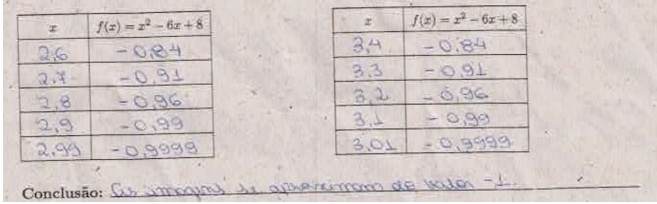 x f(x) = x² − 6x + 8
2,6 −0,84
2,7 −0,91
2,8 −0,96
2,9 −0,99
2,99 −0,9999
x f(x) = x² − 6x + 8
3,4 −0,84
3,3 −0,91
3,2 −0,96
3,1 −0,99
3,01 −0,9999
Conclusão: As imagens se aproximam do valor −1.